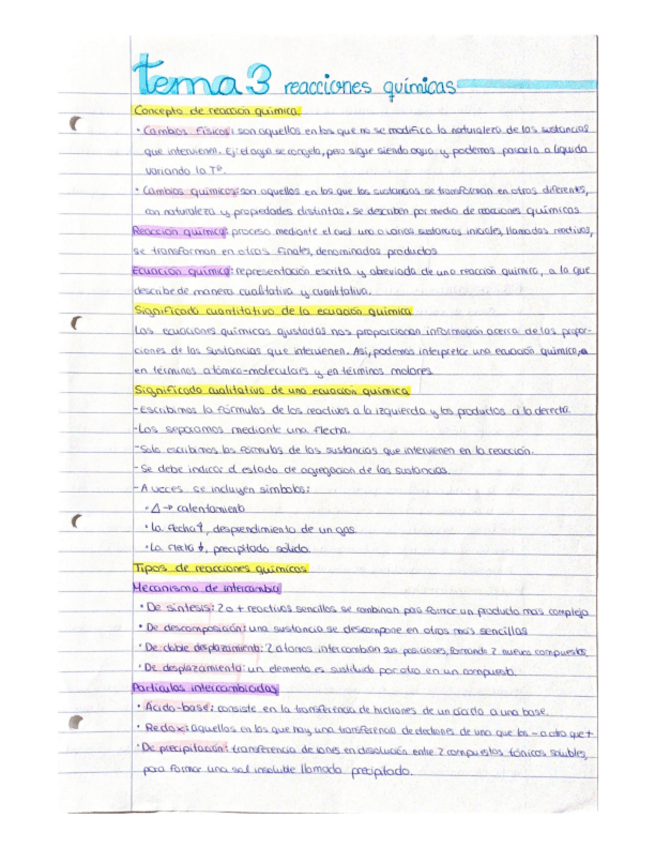 tema 3 reacciones químicas
Concepto de reacción química.
• Cambios físicos: son aquellos en los que no se modifica la naturaleza de las sustancias
que intervienen. Ej: el agua se congela, pero sigue siendo agua y podemos pasarla a líquida
variando la Tº.
• Cambios químicos: son aquellos en los que las sustancias se transforman en otras diferentes,
con naturaleza y propiedades distintas. Se describen por medio de reacciones químicas.
Reacción química: proceso mediante el cual una o varias sustancias iniciales, llamadas reactivos,
se transforman en otras finales, denominadas productos
Ecuación química: representación escrita y abreviada de una reacción química, a la que
describe de manera cualitativa y cuantitativa.
Significado cuantitativo de la ecuación química
Las ecuaciones químicas ajustadas nos proporcionan información acerca de las propor-
ciones de las sustancias que intervienen. Así, podemos interpretar una ecuación química,
en términos atómico-moleculares y en términos molares
Significado cualitativo de una ecuación química
-Escribimos la fórmulas de los reactivos a la izquierda y los productos a la derecha.
-Los separamos mediante una flecha.
-Solo escribimos las fórmulas de las sustancias que intervienen en la reacción.
-Se debe indicar el estado de agregación de las sustancias.
-A veces se incluyen símbolos:
• Δ → calentamiento
• la flecha ↑, desprendimiento de un gas
• La flecha ↓, precipitado sólido.
Tipos de reacciones químicas
Mecanismo de intercambio
• De síntesis: 2 o + reactivos sencillos se combinan para formar un producto más complejo
• De descomposición: una sustancia se descompone en otras más sencillas
• De doble desplazamiento: 2 átomos intercambian sus posiciones, formando 2 nuevos compuestos
• De desplazamiento: un elemento es sustituido por otro en un compuesto.
Partículas intercambiadas
• Ácido-base: consiste en la transferencia de hidrones de un ácido a una base.
• Redox: aquellos en los que hay una transferencia de electrones de uno que los - a otro que +
• De precipitación: transferencia de iones en disolución entre 2 compuestos iónicos solubles,
para formar una sal insoluble llamada precipitado.